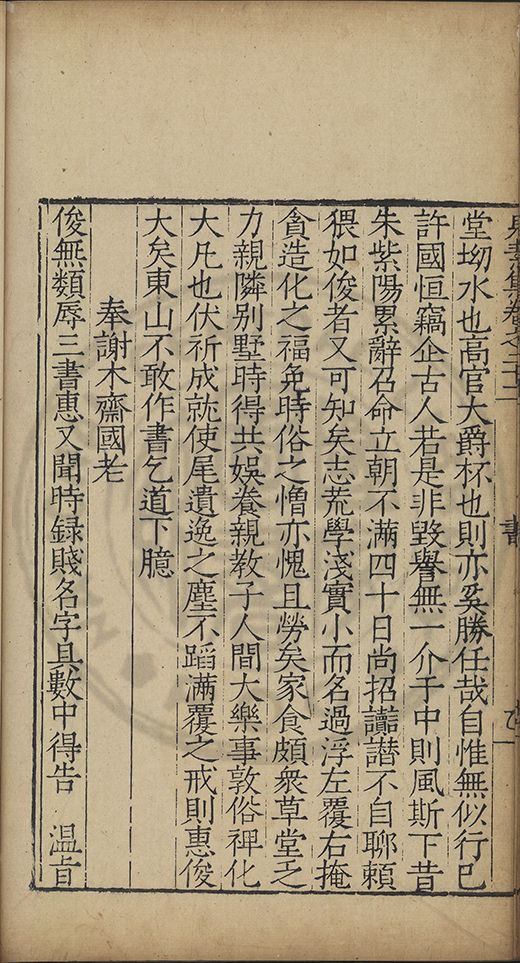 堂坳水也高官大爵杯也則亦奚勝任哉自惟無似行巳
許國恒竊企古人若是非毀譽無一介于中則風斯下昔
朱紫陽累辭召命立朝不滿四十日尚招讟譖不自聊賴
猥如俊者又可知矣志荒學淺實小而名過浮左覆右掩
貪造化之福免時俗之憎亦愧且勞矣家食頗衆草堂之
力親隣别墅時得共娛養親教子人間大樂事敦俗裨化
大凡也伏祈成就使尾遺逸之塵不蹈滿覆之戒則惠俊
大矣東山不敢作書乞道下臆
奉謝木齋國老
俊無類辱三書惠又聞時録賤名字具數中得告 温旨